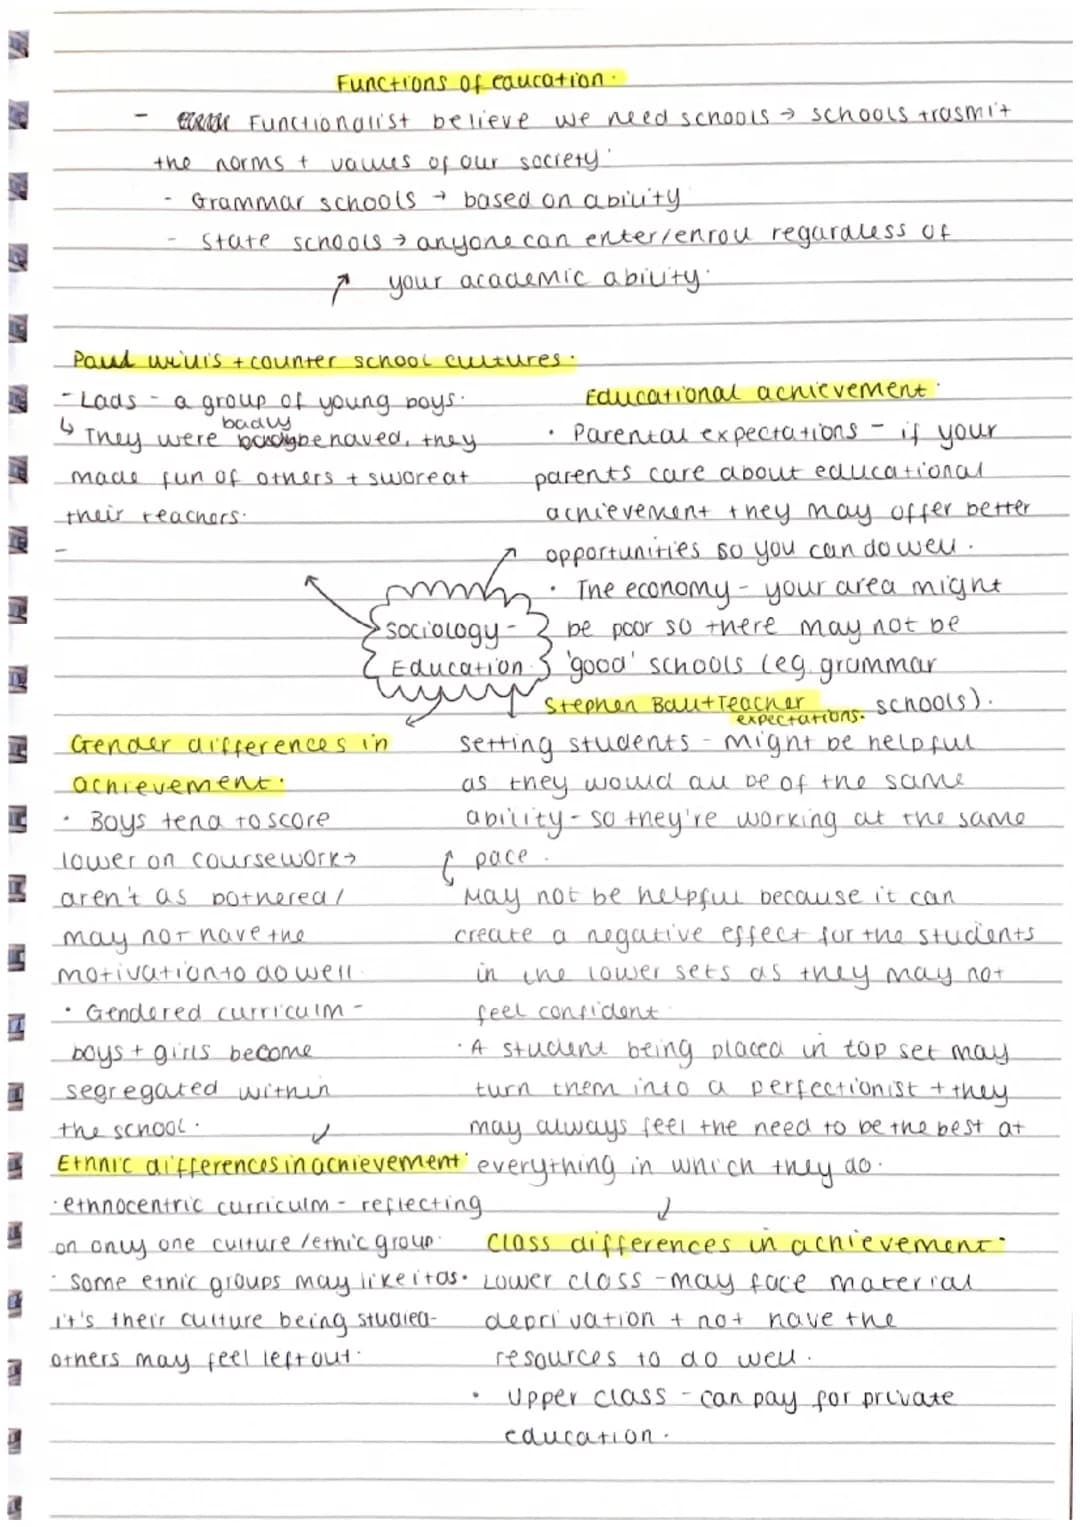 Functions of education.
- Functionalist believe we need schools → schools trasmit
the norms + values of our society.
- Grammar schools → based on ability
- State schools → anyone can enter/enroll regardless of
your academic ability.
Paul Willis + counter school cultures.
- Lads - a group of young boys.
badly
↳ They were behaved, they
made fun of others + swore at
their teachers.
-
Educational achievement.
• Parental expectations - if your
parents care about educational
achievement they may offer better
opportunities so you can do well.
• The economy - your area might
be poor so there may not be
'good' schools (eg. grammar
schools).
Sociology -
Education.
Stephen Ball + Teacher
expectations.
Setting students - might be helpful
as they would all be of the same
ability - so they're working at the same
pace.
May not be helpful because it can
create a negative effect for the students
in the lower sets as they may not
feel confident.
• A student being placed in top set may
turn them into a perfectionist + they
may always feel the need to be the best at
everything in which they do.
Gender differences in
achievement.
• Boys tend to score
lower on coursework →
aren't as bothered/
may not have the
motivation to do well.
• Gendered curriculm -
boys + girls become
segregated within
the school.
Ethnic differences in achievement.
• ethnocentric curriculm - reflecting
on only one culture/ethic group.
• Some etnic groups may like it as
it's their culture being studied -
others may feel left out.
Class differences in achievement.
• Lower class - may face material
deprivation + not have the
resources to do well.
• Upper class - can pay for private
education.